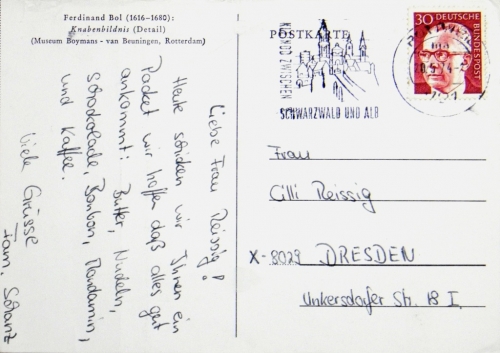 Ferdinand Bol (1616-1680):
Knabenbildnis (Detail)
(Museum Boymans - van Beuningen, Rotterdam)
Liebe Frau Reissig!
Heute schicken wir Ihnen ein
Packet wir hoffen daß alles gut
ankommt: Butter, Nudeln,
Schockolade, Bonbon, Mondamin,
und Kaffee.
Viele Grüsse
Fam. Schanz
POSTKARTE
ZWISCHEN
SCHWARZWALD UND ALB
30 DEUTSCHE
BUNDESPOST
Frau
Cilli Reissig
X-8029 DRESDEN
Unkersdorfer Str. 18 I.